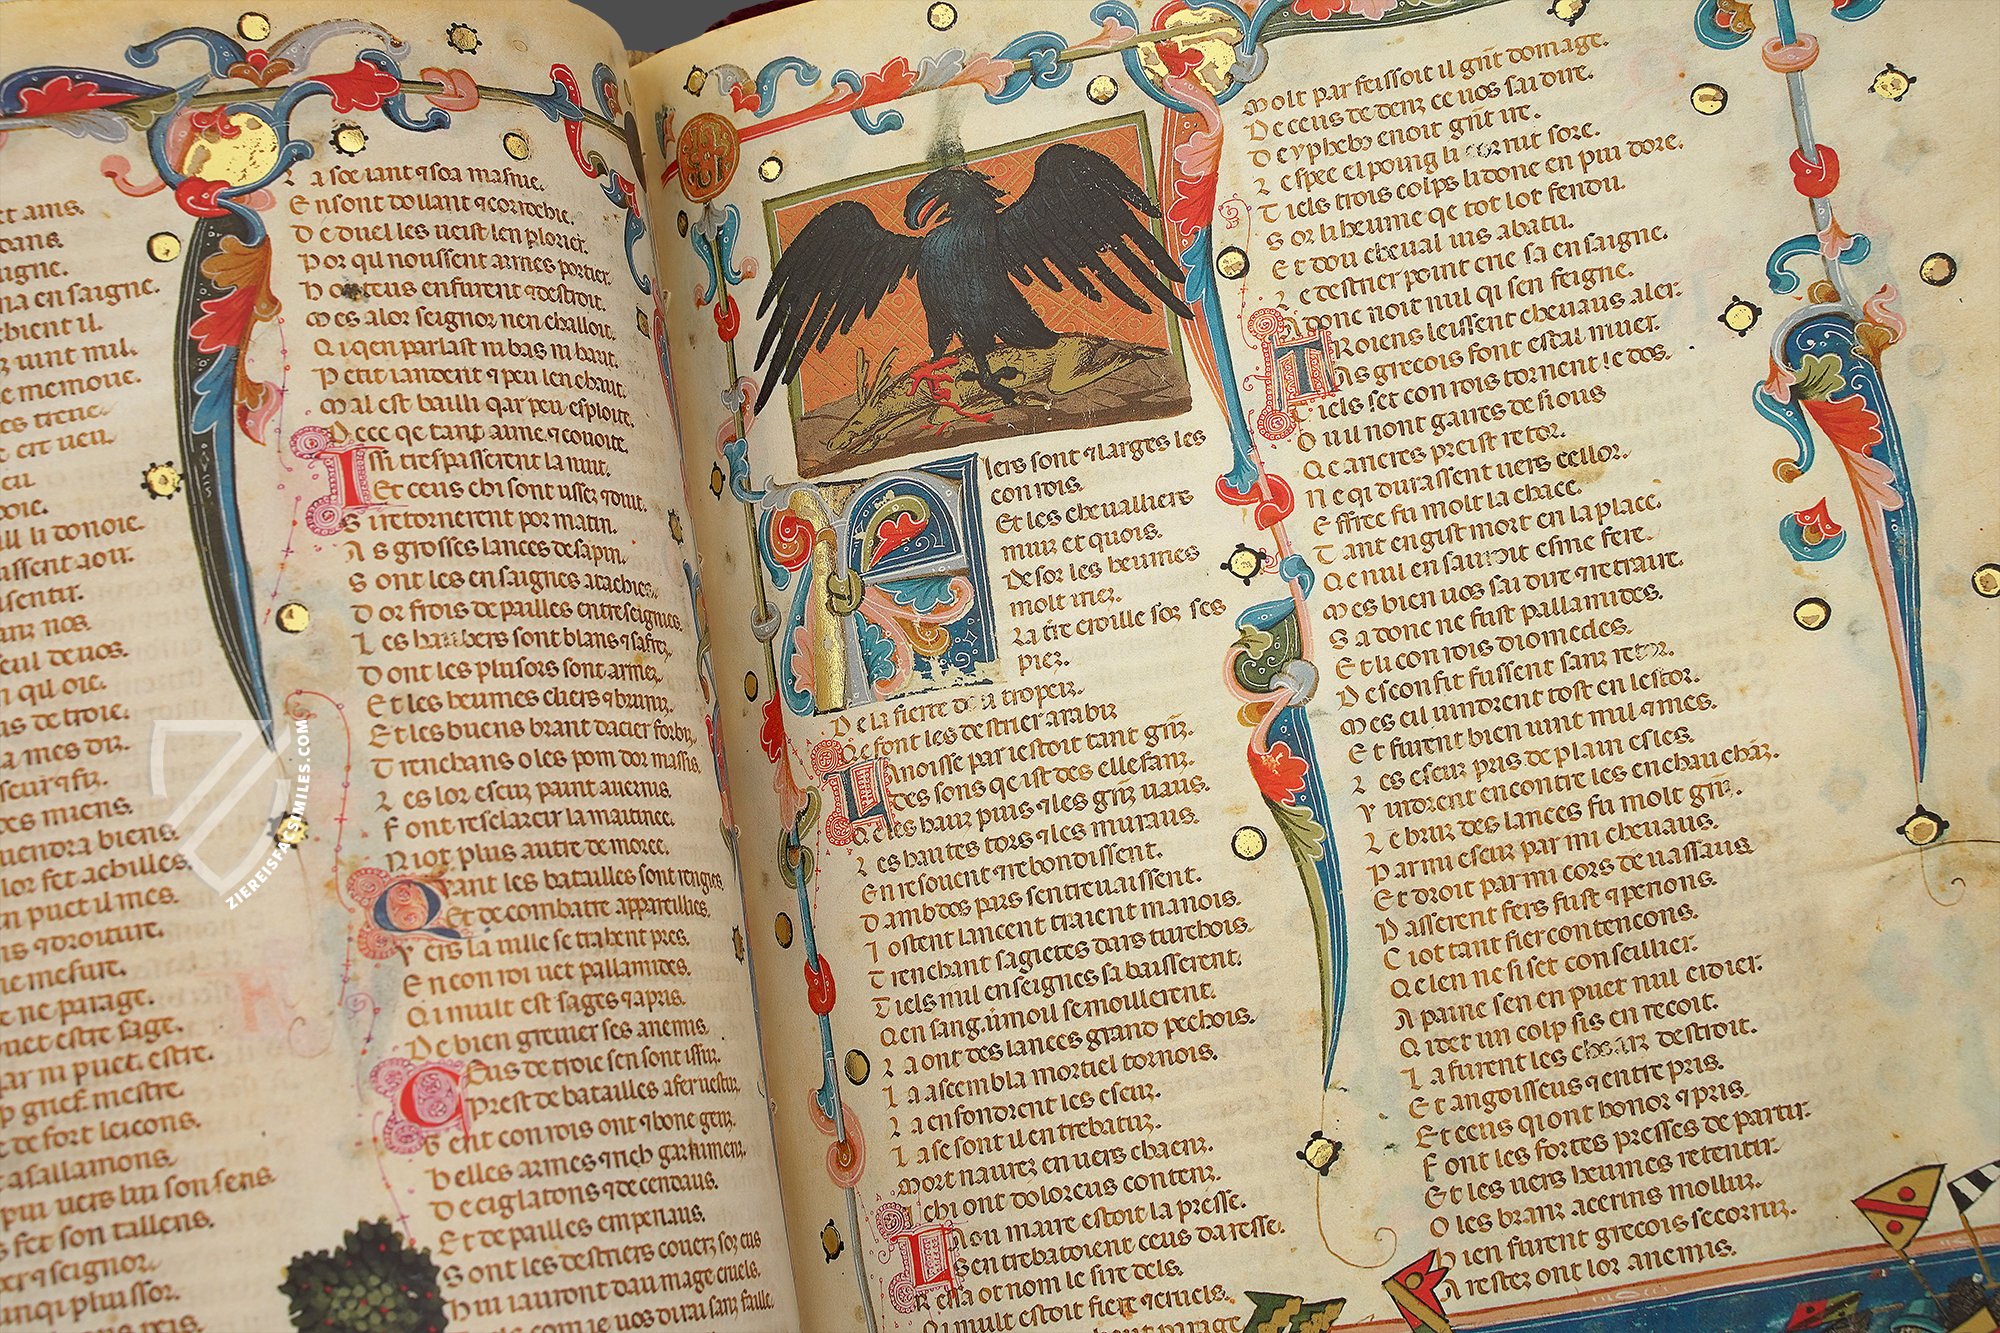 et ams.
dans.
aigne.
na ensaigne.
bient il.
z uint mil.
e memoue.
es trene.
t ert uen.
eu
oie.
ll li donoie.
issent aoir.
sentir.
anz nos.
eul deuos.
n qil oie.
us de troie.
a mes dir.
seur ⁊ fiz.
des miens.
uendra biens.
lor fet achilles.
en puet il mes.
ns ⁊ droiture.
ne mesure.
t ne parage.
uet estre sage.
ar ni puet estre.
p grief mestre.
t de fort leicons.
t asallamons.
piu uers lui son sens.
s fet son tallens.
er ⁊ seignor.
unqi plaissor.
La soe iant ⁊ soa masnie.
En sont dollant ⁊ cordebie.
De duel les ueist len plorier.
Por qil noussent armes portier.
Honteus en furent ⁊ destroit.
Mes alor seignor nen challoit.
Qi qen parlast ni bas ni haut.
Petit iandent ⁊ peu len chaut.
Mal est bailli qar peu esploite.
Dece qe tant aime ⁊ couoite.
Issi trespasserent la nuit.
Et ceus chi sont usser ⁊ duit.
Si retornerent por matin.
As grosses lances de sapin.
Sont les ensaignes atachies.
Dor frois de pailles entreseignies.
Les haubers sont blans ⁊ safrez.
Dont les plusors sont armez.
Et les heumes cliers ⁊ bruniz.
Et les buens brant dacier forbiz.
Trenchans o les pom dor massis.
Les lor escuz paint auernis.
Font resclarcir la maitinee.
Niot plus autre demoree.
Qant les batailles sont rengies.
Et de combatre appareillies.
Vers la mille se trahent pres.
En conroi uet pallamides.
Qi mult est sages ⁊ apris.
De bien greuier ses anemis.
Ceus de troie sen sont issuz.
Prest de batailles afer uestuz.
Sent conrois ont ⁊ bone genz.
Belles armes ⁊ rich garniment.
De ciglatons ⁊ de cendaus.
Et de pailles empenaus.
Sont les destriers couerz sor eus
Hui iauront daumage cruels.
com ie uos dirai sanz faille.
Fiers sont ⁊ larges les
conrois.
Et les cheualliers
muiz et quois.
De sor les heumes
molt iriez.
La tre croille sor ses
piez.
De la fierte
Qe font les destrier arabiz
La noisse par iestoit tant grz.
Des sons qe ist des ellefanz.
Qe les hauz puis ⁊ les grz uaus.
Les hautes tors ⁊ les muraus.
En resonent ⁊ rebondissent.
Dambdos pars sentreuaissent.
Iostent lancent traient manois.
Trenchant sagietes dars turchois.
Tiels mil enseignes sabaisserent.
Qen sang uimoil se moillerent.
La ont des lances grand pechois.
La asembla mortiel tornois.
La enfondrent les escuz.
La se sont il entrebatuz.
Mort naurez enuers chaenz.
Ichi ont doloreus contenz.
La ou maire estoit la presse.
Sentrebatoient ceus daresse.
Resa ot nom le sire dels.
Qi mult estoit fiere ⁊ cruiels.
Molt par feissoit il grnt domage.
De ceus de denz ce uos sai dire.
Deyphebo en oit grnt ire.
Lespee el poing li
Tiels trois colps li done en piu dore.
Sor li heume qe tot lot fendu.
Et dou cheual ius abatu.
Le destrier point crie sa ensaigne.
Adone noit nul qi sen feigne.
Troiens leissent cheuaus aler.
As grecois font estal muer.
Tiels set conrois tornent le dos.
Ou il nont gaires desious
Qe ancres preist retor.
Ne qi durassent uers cellor.
Effree fu molt la chace.
Tant en gist mort en la place.
Qe nul en sauroit esme fere.
Mes bien uos sai dire ⁊ retraire.
Sadone ne fust pallamides.
Et li conrois diomedes.
Desconfit fussent sanz retor.
Mes cil uindrent tost en lestor.
Et furent bien uint mil ⁊ mes.
Les escuz pris de plain esles.
Vindrent encontre les enchauchanz.
Le bruiz des lances fu molt grz.
Parmi escuz parmi cheuaus.
Et droit parmi cors de uassaus.
Passerent fers fust ⁊ penons.
Ciot tant fier contencons.
Qe len ne si set conseillier.
A paine sen en puet nul eidier.
Qiter un colp sis en recoit.
La furent les destroit.
Et angoisseus ⁊ entrepris.
Et ceus qi ont honor ⁊ pris.
Font les fortes presses departir.
Et les uers heumes retentir.
O les branz acerins molluz.
Bien furent grecois secorruz.
Arester ont lor anemis.
ZIEREISFACSIMILES.COM